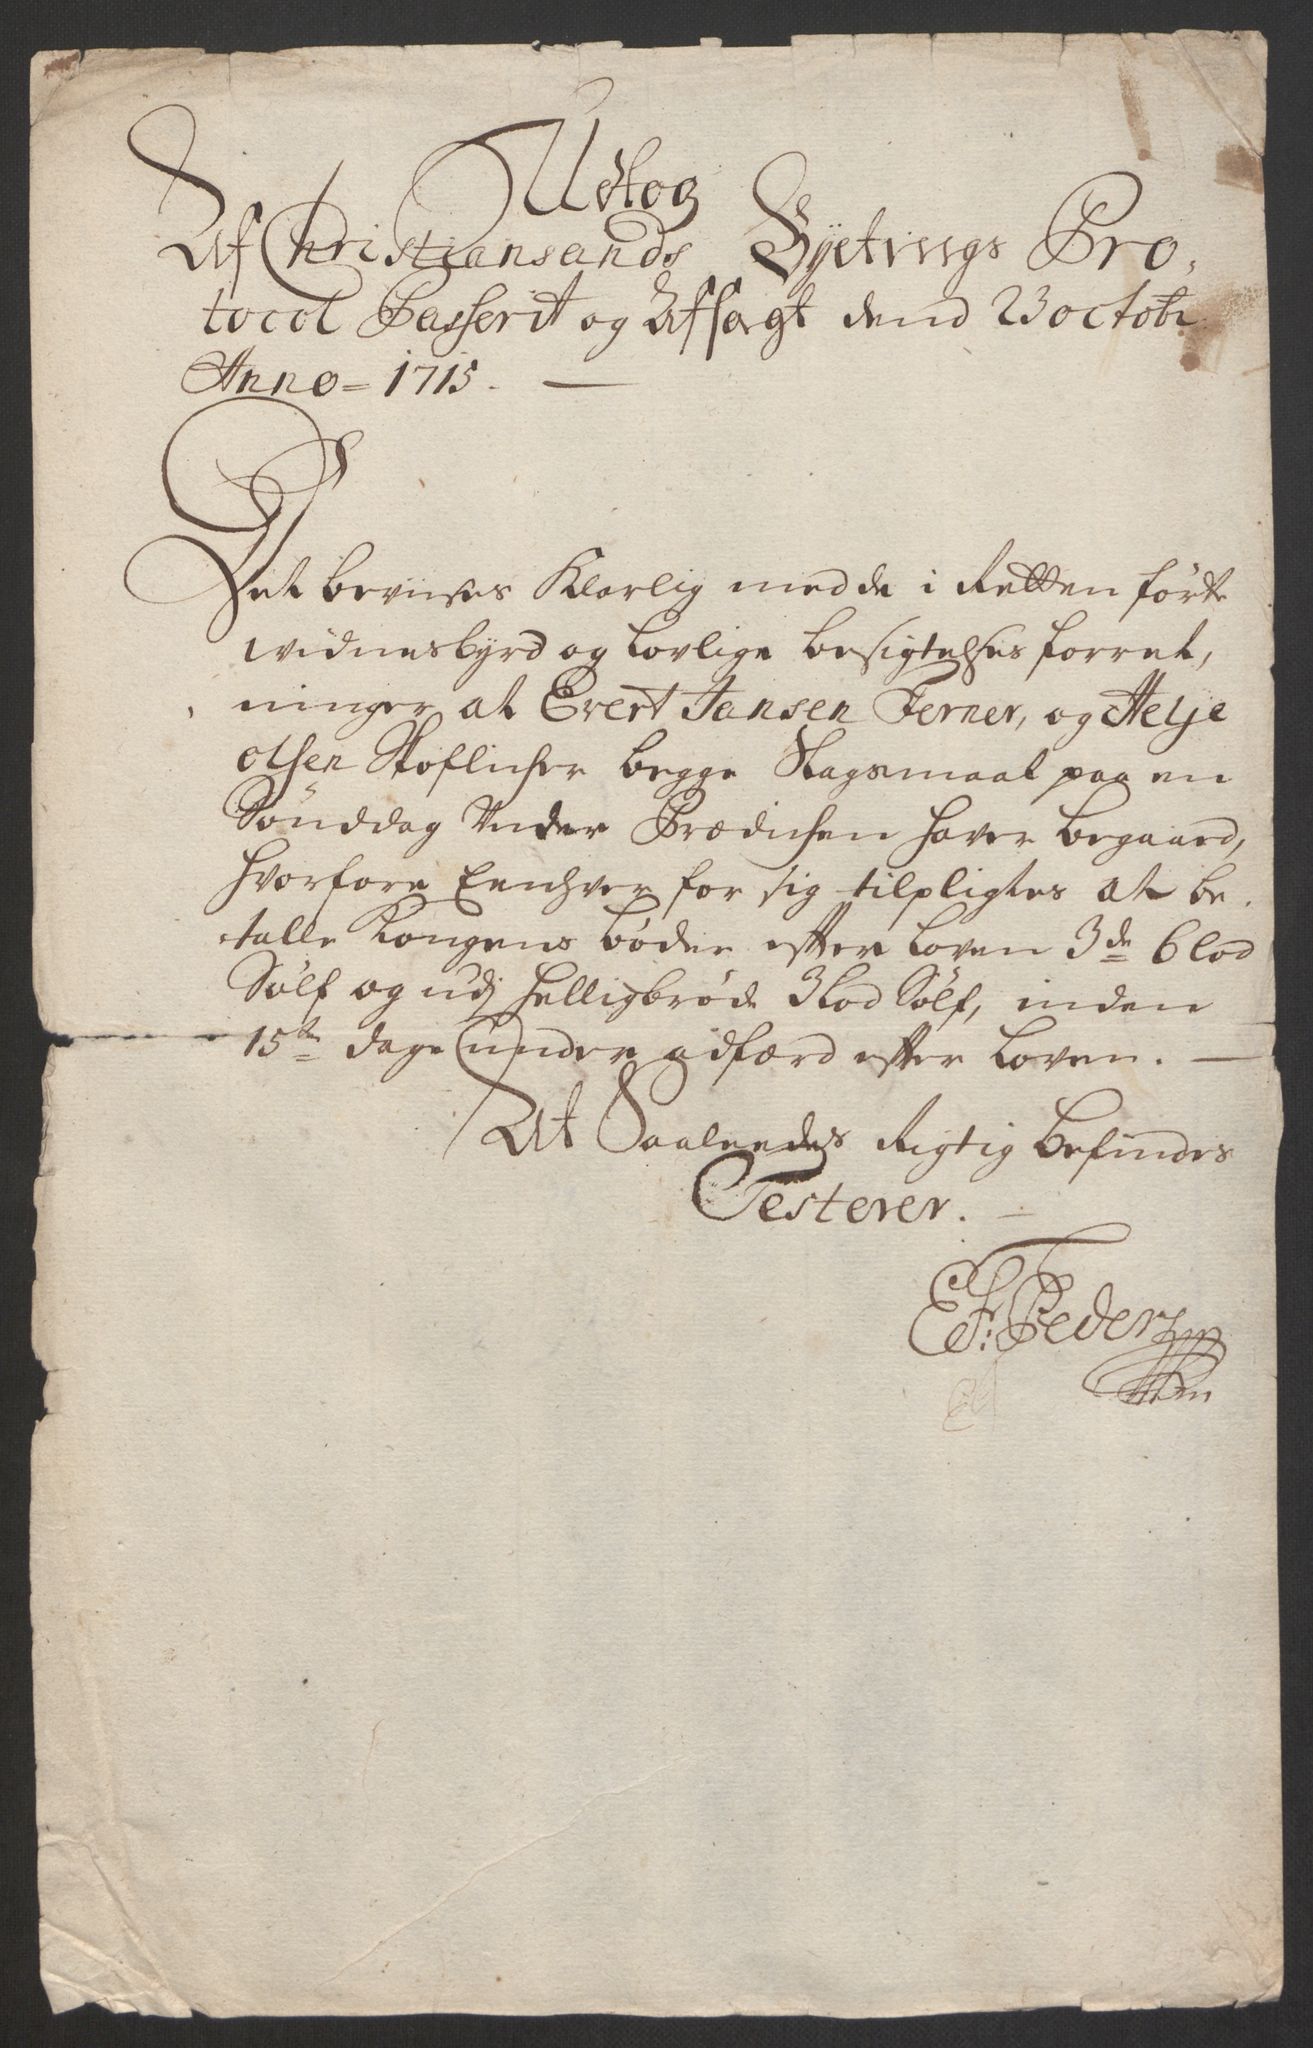 Udtog
Af Christiansands Byetings Pro,
tocol Passerit og Afsagt dend 23 octobr
Anno = 1715. —
Det beviises Klarlig med de i Retten förte
widnesbyrd og lovlige besigtelses forret,
ninger at Evert Jansen Ferner, og Helje
olsen begge Slagsmaal paa en
Sönddag Under Prædichen haver begaaed,
hvorfore Eenhver for sig tilpligtes at be,
talle Kongens böder efter Loven 3de 6 lod
Sölf og udj Helligbröde 3 lod Sölf, inden
15ten dage under adfærd efter Loven. —
At Saaleedes Rigtig befindes
Testerer. —
E. F: Peders